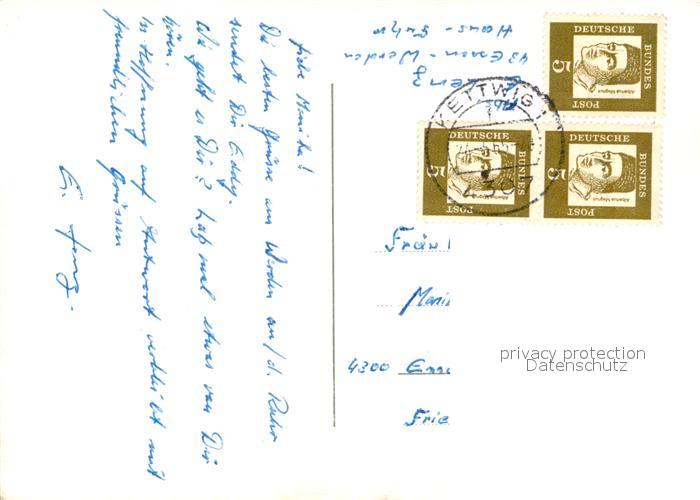 Liebe Monika!
Die besten Grüsse aus Werden an/d. Ruhr
sendet Dir Eddy.
Wie geht es Dir? Laß mal etwas von Dir
hören.
In Hoffnung auf Antwort verbleibt mit
freundlichen Grüssen
E.
43 Essen-Werden
Haus-
DEUTSCHE
BUNDES
POST
5
Albertus Magnus
DEUTSCHE
BUNDES
POST
5
Albertus Magnus
DEUTSCHE
BUNDES
POST
5
Albertus Magnus
KETTWIG
Fräu
Moni
4300 Esse
Frie
privacy protection
Datenschutz